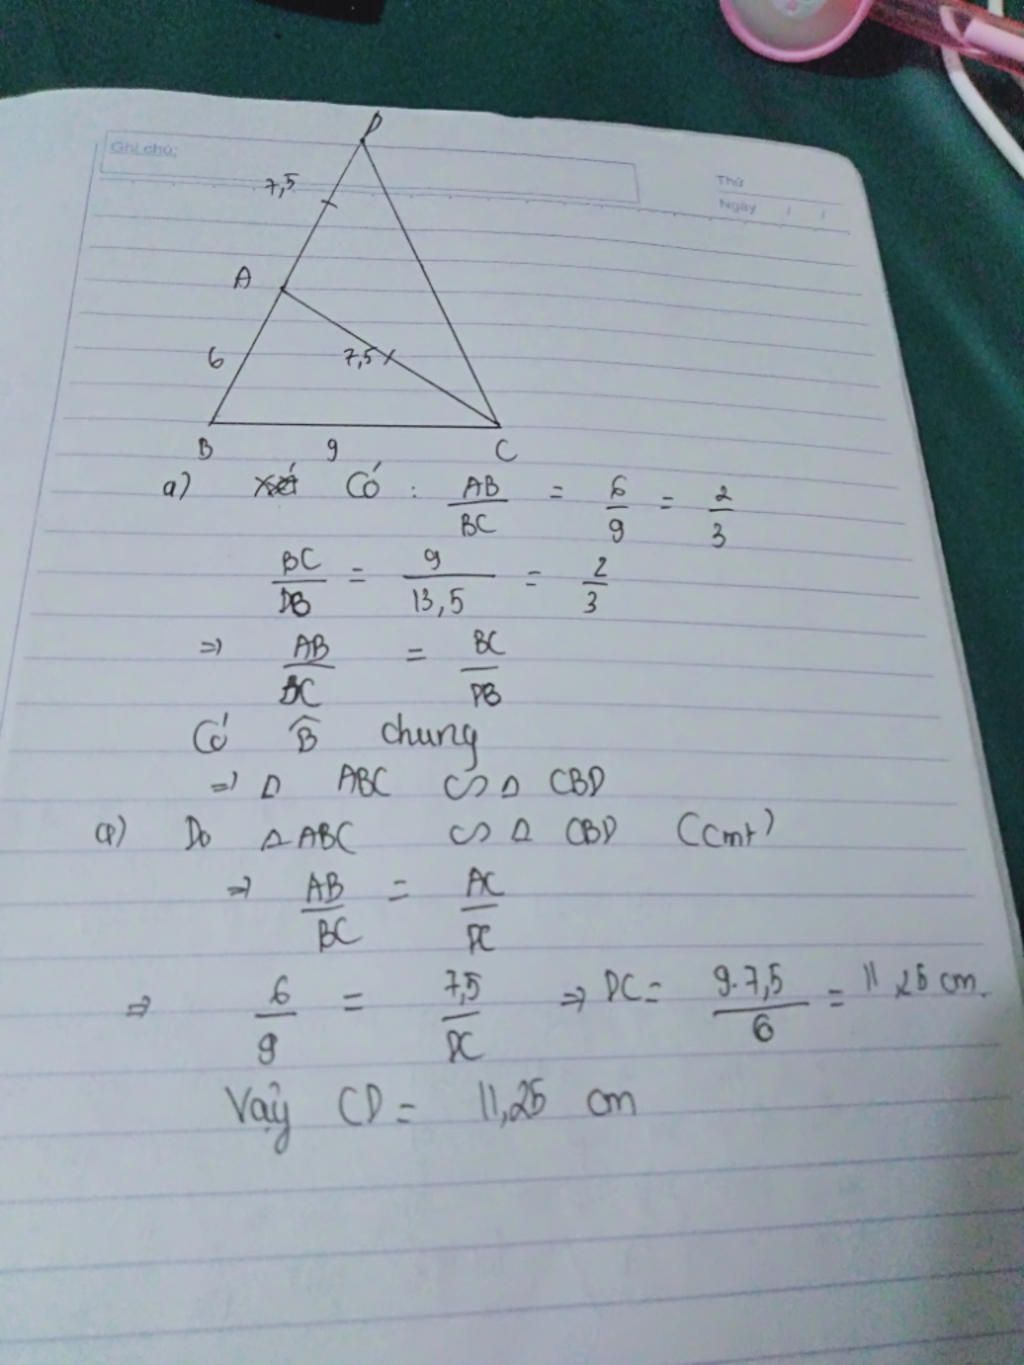 D
Ghi chú:
Thứ
Ngày / /
7,5
A
6
7,5
B 9 C
a) Có : AB/BC = 6/9 = 2/3
BC/DB = 9/13,5 = 2/3
=> AB/BC = BC/DB
Có B̂ chung
=> Δ ABC ∽ Δ CBD
Do Δ ABC ∽ Δ CBD (cmt)
=> AB/BC = AC/DC
=> 6/9 = 7,5/DC => DC = 9.7,5/6 = 11,25 cm.
Vậy CD = 11,25 cm